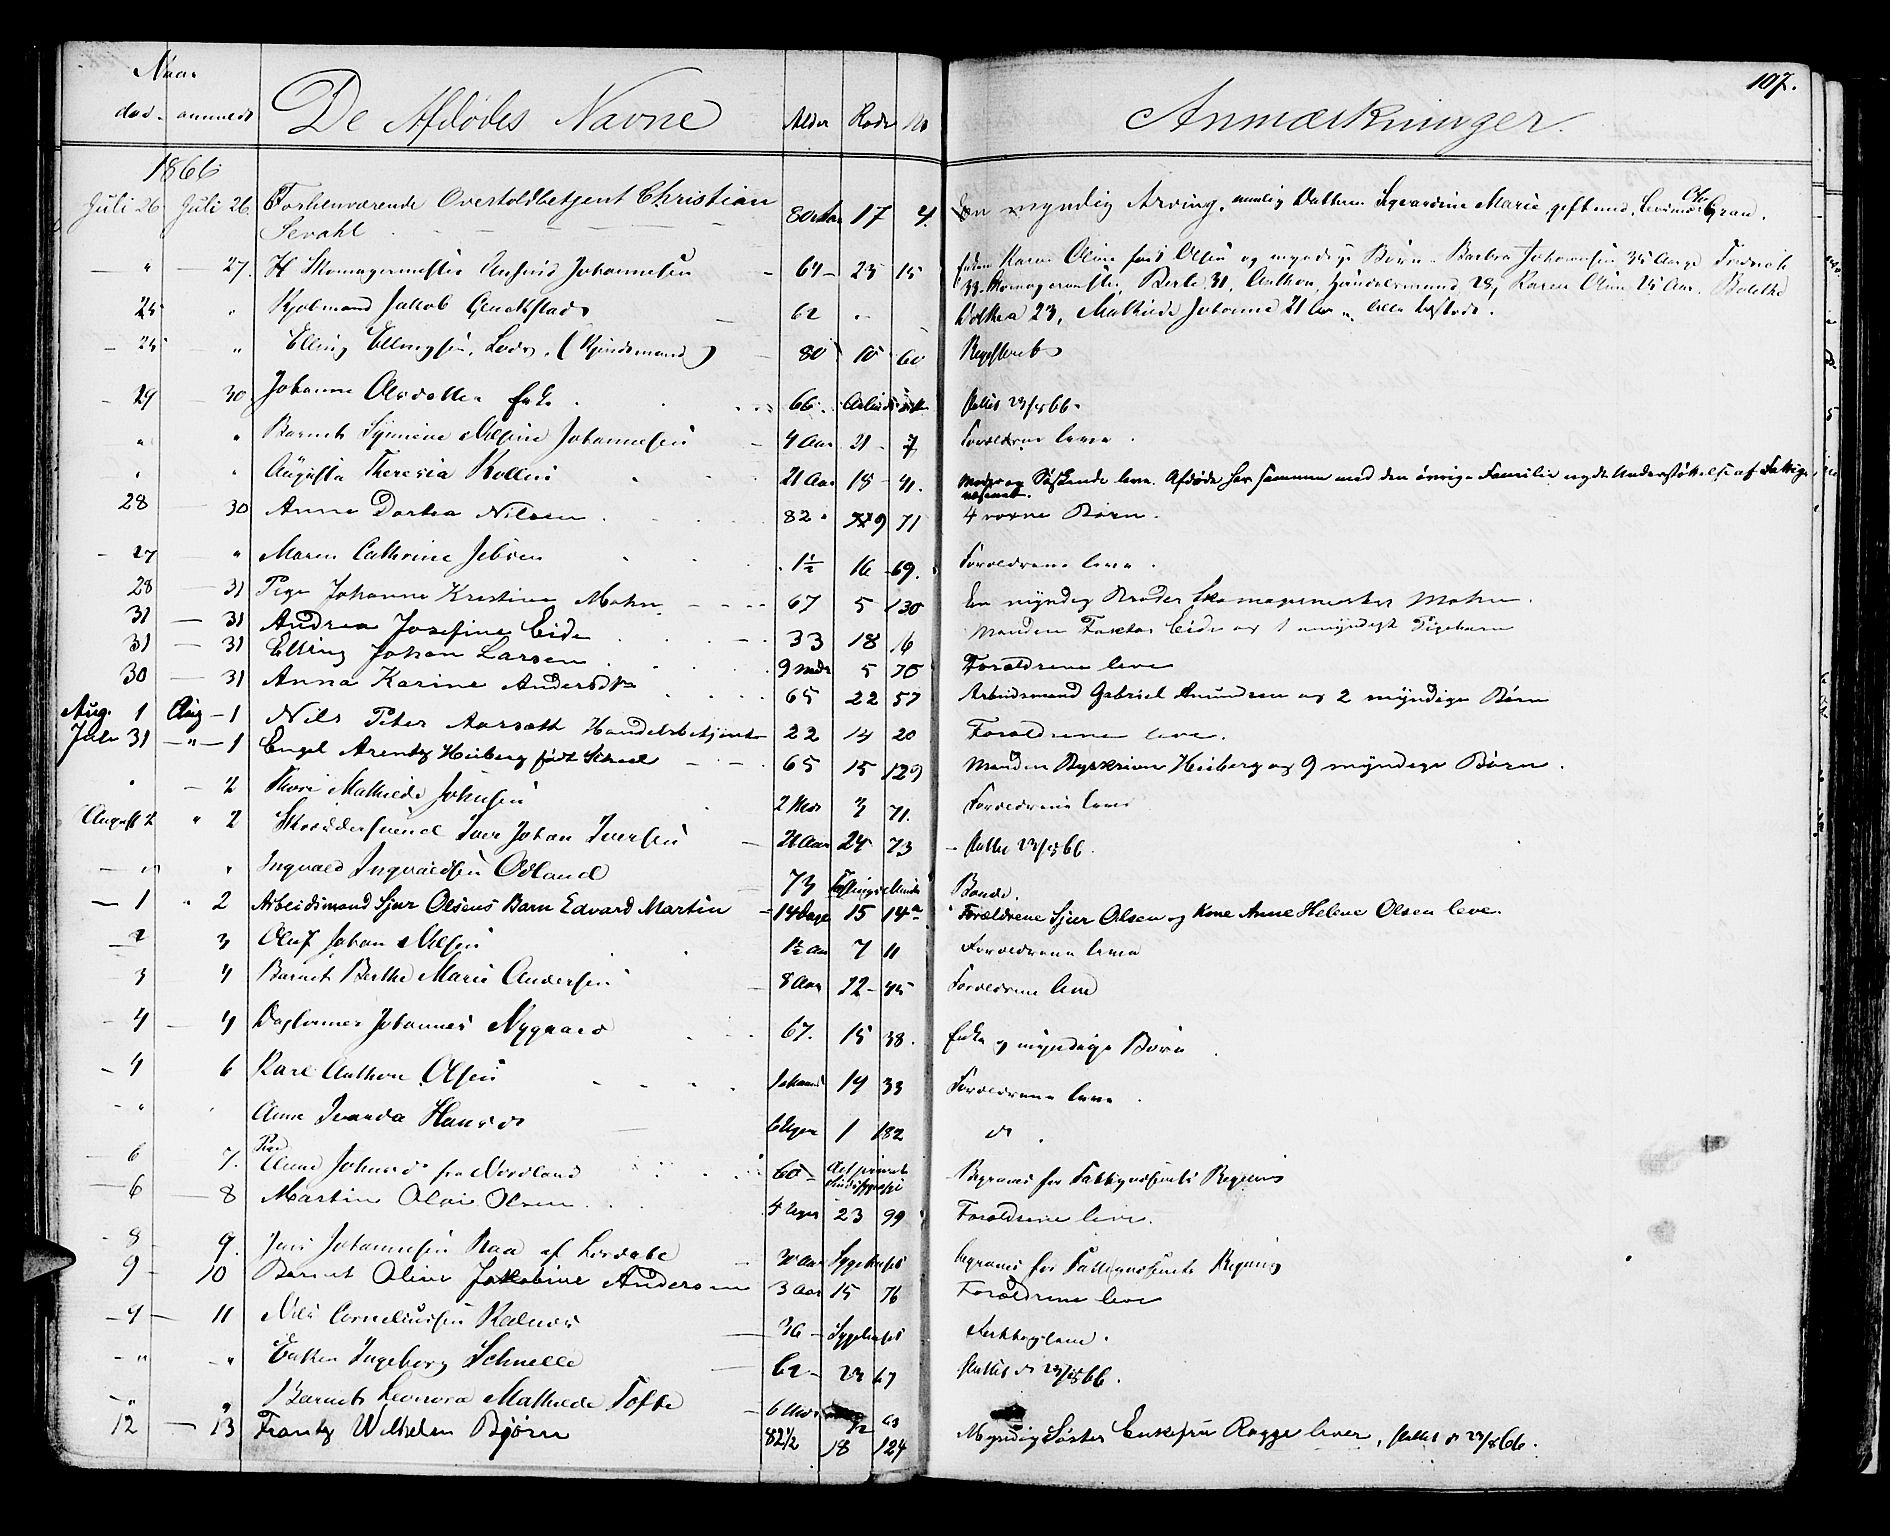 107.
Naar
død - anmeldt De Afdødes Navne Alder Rode No Anmærkninger.
1866
Juli 26. Juli 26. Forhenværende Overtoldbetjent Christian 80 Aar 17 4. En myndig Arving, nemlig Datteren Maria gift med Gran.
Sevahl
" 27. Skomagermester Johannesen 64 23 15 Enken Karen Oline født Olsen og myndige Børn - Barbra Johannesen 35 Aar, Fredrik
33, Skomagermester, Berte 31, Anthon, Handelsmand 28, Karen Oline 25 Aar, Bolethe
25 " Jakob 62 " Dorthea 23, Mathilde Johanne 21 Aar
25 " Elling Ellingsen, Lods. 80 10 60 Registreret
29 30 Johanne Olsdatter Enke. 66 Skiftet 23/8 66.
" " Barnet Nilsine Johannesen 4 Aar 21 7 Forældrene leve.
" " Augusta Theresia Kollen 21 Aar 18 41. Moder og Søskende leve. Afdøde har sammen med den øvrige Familie nydt Understøttelse af Fattig
væsenet.
28 30 Anne Dortea Nilsen 82 9 71 4 voxne Børn.
27 " Maren Cathrine Jebsen 1½ 16 69. Forældrene leve.
28 31 Pige Johanne Kristine Mohn 67 5 130 En myndig Broder Skomagermester Mohn.
31 31 Andrea Josefine Eide 33 18 6 Manden Faktor Eide og 1 umyndigt Pigebarn
31 31 Elling Johan Larsen 9 Mdr 5 70 Forældrene leve
30 31 Anna Karine Andersdtr 65 22 57 Arbeidsmand Gabriel Amundsen og 2 myndige Børn
Aug. 1 Aug - 1 Nils Peter Aarseth Handelsbetjent 22 14 20 Forældrene leve.
Juli 31 " 1 Engel Arentz Heiberg født Scheel 65 15 129 Manden Byskriver Heiberg og 9 myndige Børn.
" 2 Thora Mathilde Johnsen 2 Mdr 3 71. Forældrene leve
August 2 " 2 Skræddersvend Iver Johan Iversen 21 Aar 24 73 Skiftet 23/8 66.
" " Ingvald Ingvaldsen Odland 73 Bonde.
1 " 2 Arbeidsmand Sjur Olsens Barn Edvard Martin 14 Dage 15 14a Forældrene Sjur Olsen og Kone Anne Helene Olsen leve.
2 3 Oluf Johan Nilsen 1½ Aar 7 11 Forældrene leve
3 4 Barnet Berthe Marie Andersen 8 Aar 12 45 Forældrene leve
4 4 Daglønner Johannes Nygaard 67. 15 38. Enke og myndige Børn
4 6 Karl Anthon Olsen 14 33 Forældrene leve.
" Anne Hansd. 6 Uger 1 182 do
6 7. Pige Anne Johnsd. fra Nordland 60 Begraves for Fattigvæsenets Regning
6 8 Martin Olai Olsen 5 Uger 23 99 Forældrene leve.
8 9. Jens Johannesen Raa af 30 Aar Sygehuset begraves for Fattigvæsenets Regning
9 10 Barnet Oline Jakobine Andersen 3 Aar 15 76 Forældrene leve
4 11 Nils Corneliussen Kalnes 36 Sygehuset
" " Enken Ingeborg Schnelle 62 22 67 Skiftet d 23/8 66.
" " Barnet Leonora Mathilde Tofte 6 Mdr 63
12 13 Frantz Wilhelm Bjørn 82½ 18 124 Myndig Søster Enkefru Rogge lever, Skiftet d 23/8 66.